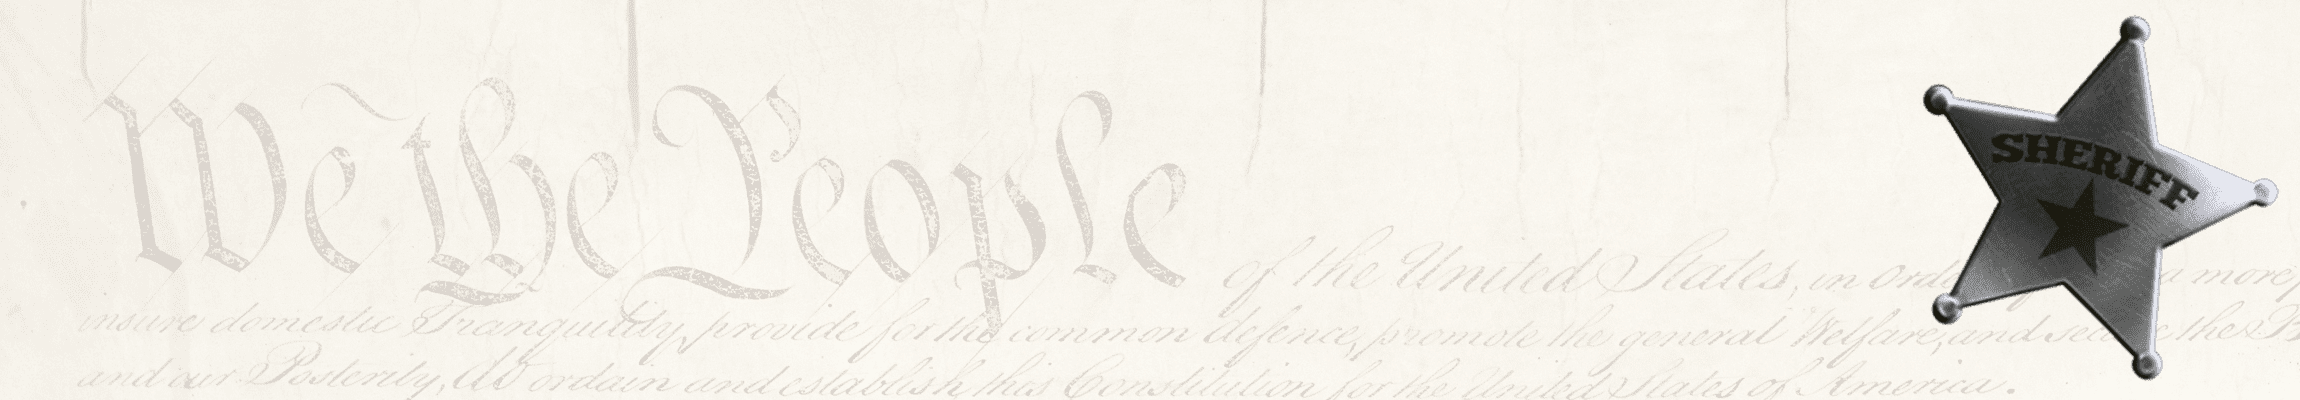 We the People of the United States, in Orde a more
insure domestic Tranquility, provide for the common defence, promote the general Welfare, and secure the B
and our Posterity, do ordain and establish this Constitution for the United States of America.
SHERIFF